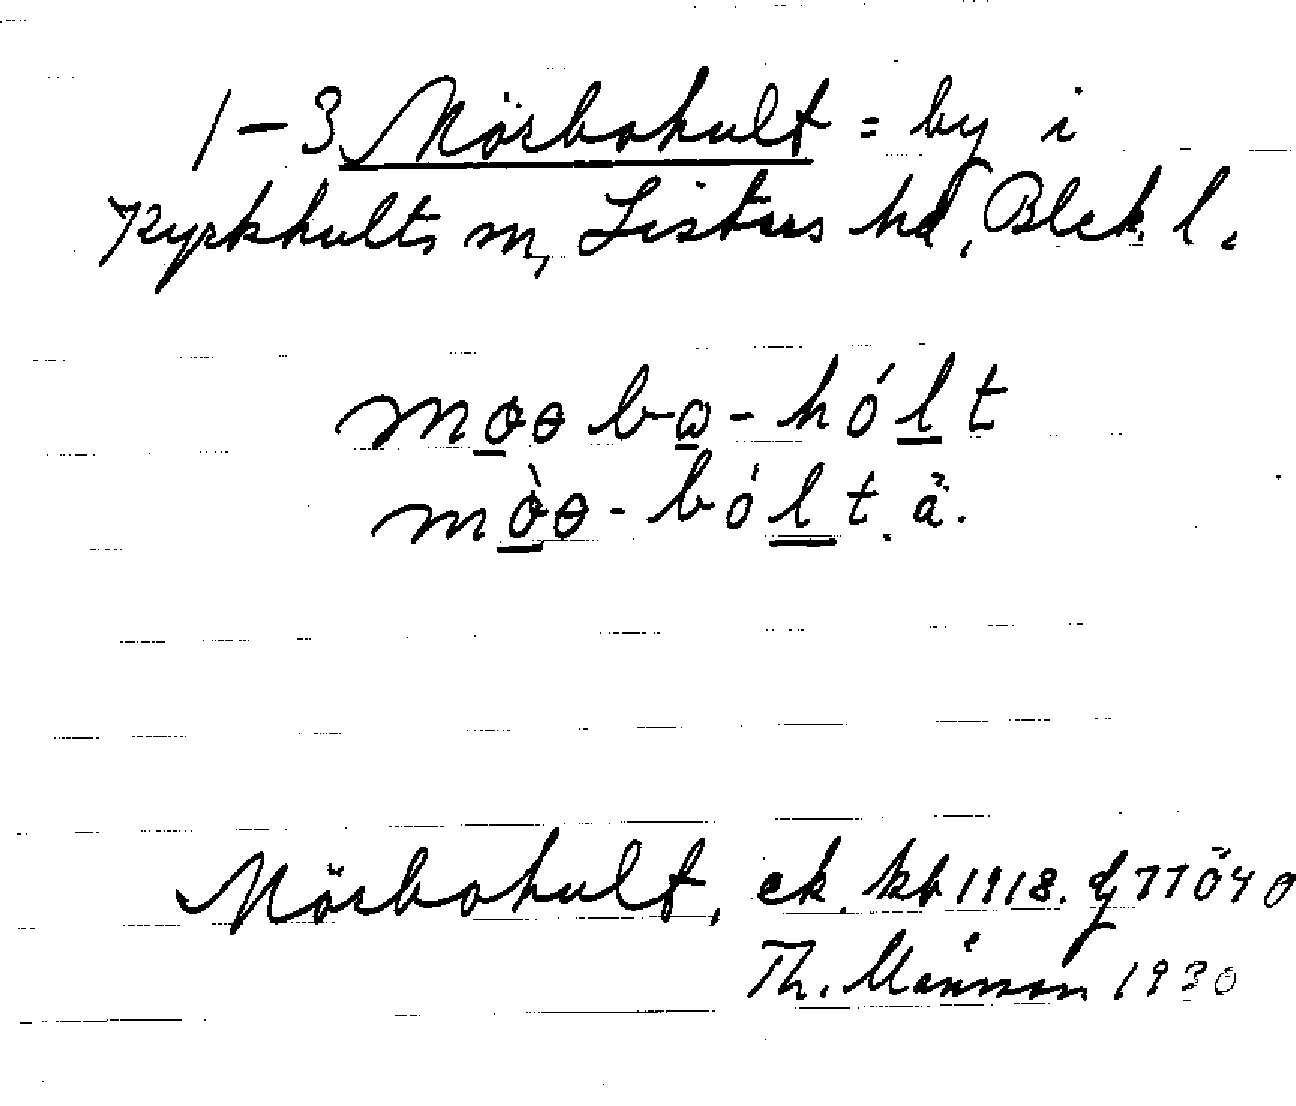 1–3 Mörbohult = by i
Kyrkhults sn, Listers hd, Blek. l.
mɵɵ bɷ - hól t
mɵ̀ɵ - ból t. ä.
Mörbohult, ek. kb 1918.
Th. Månsson 1930